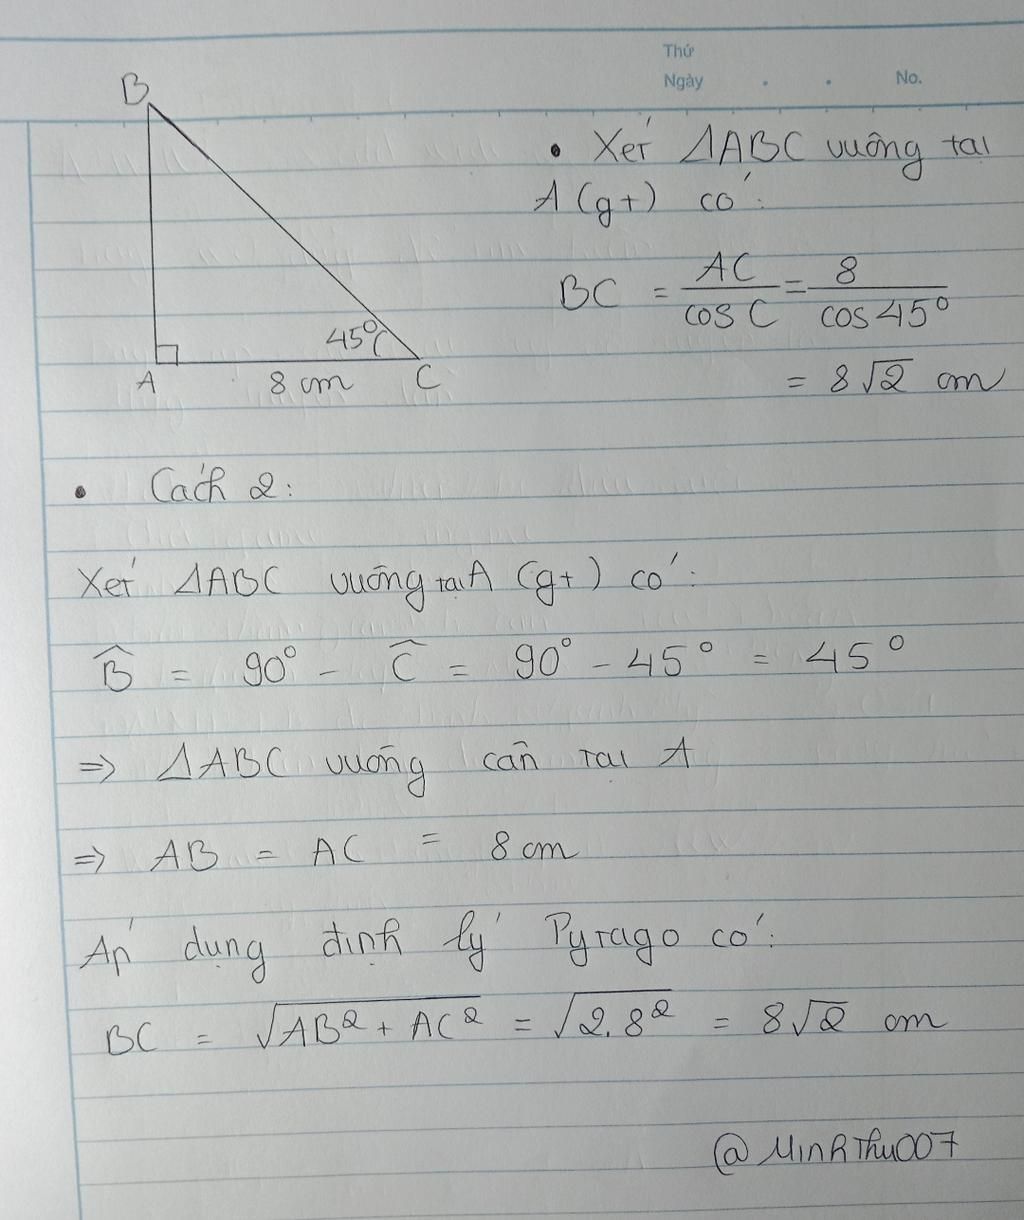 Thứ
Ngày . . No.
B
• Xét ΔABC vuông tại
A (gt) có:
BC = AC / cos C = 8 / cos 45°
= 8√2 cm
45°
A 8 cm C
• Cách 2:
Xét ΔABC vuông tại A (gt) có:
B̂ = 90° - Ĉ = 90° - 45° = 45°
⇒ ΔABC vuông cân tại A
⇒ AB = AC = 8 cm
Áp dụng định lý Pytago có:
BC = √(AB² + AC²) = √(2.8²) = 8√2 cm
@MinhThu007